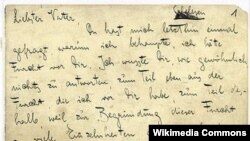 Schelesen 1
Liebster Vater
Du hast mich letzthin einmal
gefragt warum ich behaupte ich hätte
Furcht vor Dir. Ich wusste Dir, wie gewöhnlich
nichts zu antworten zum Teil eben aus der
Furcht die ich vor Dir habe zum Teil des-
halb weil zur Begründung dieser Furcht
viele Einzelnheiten
Wikimedia Commons